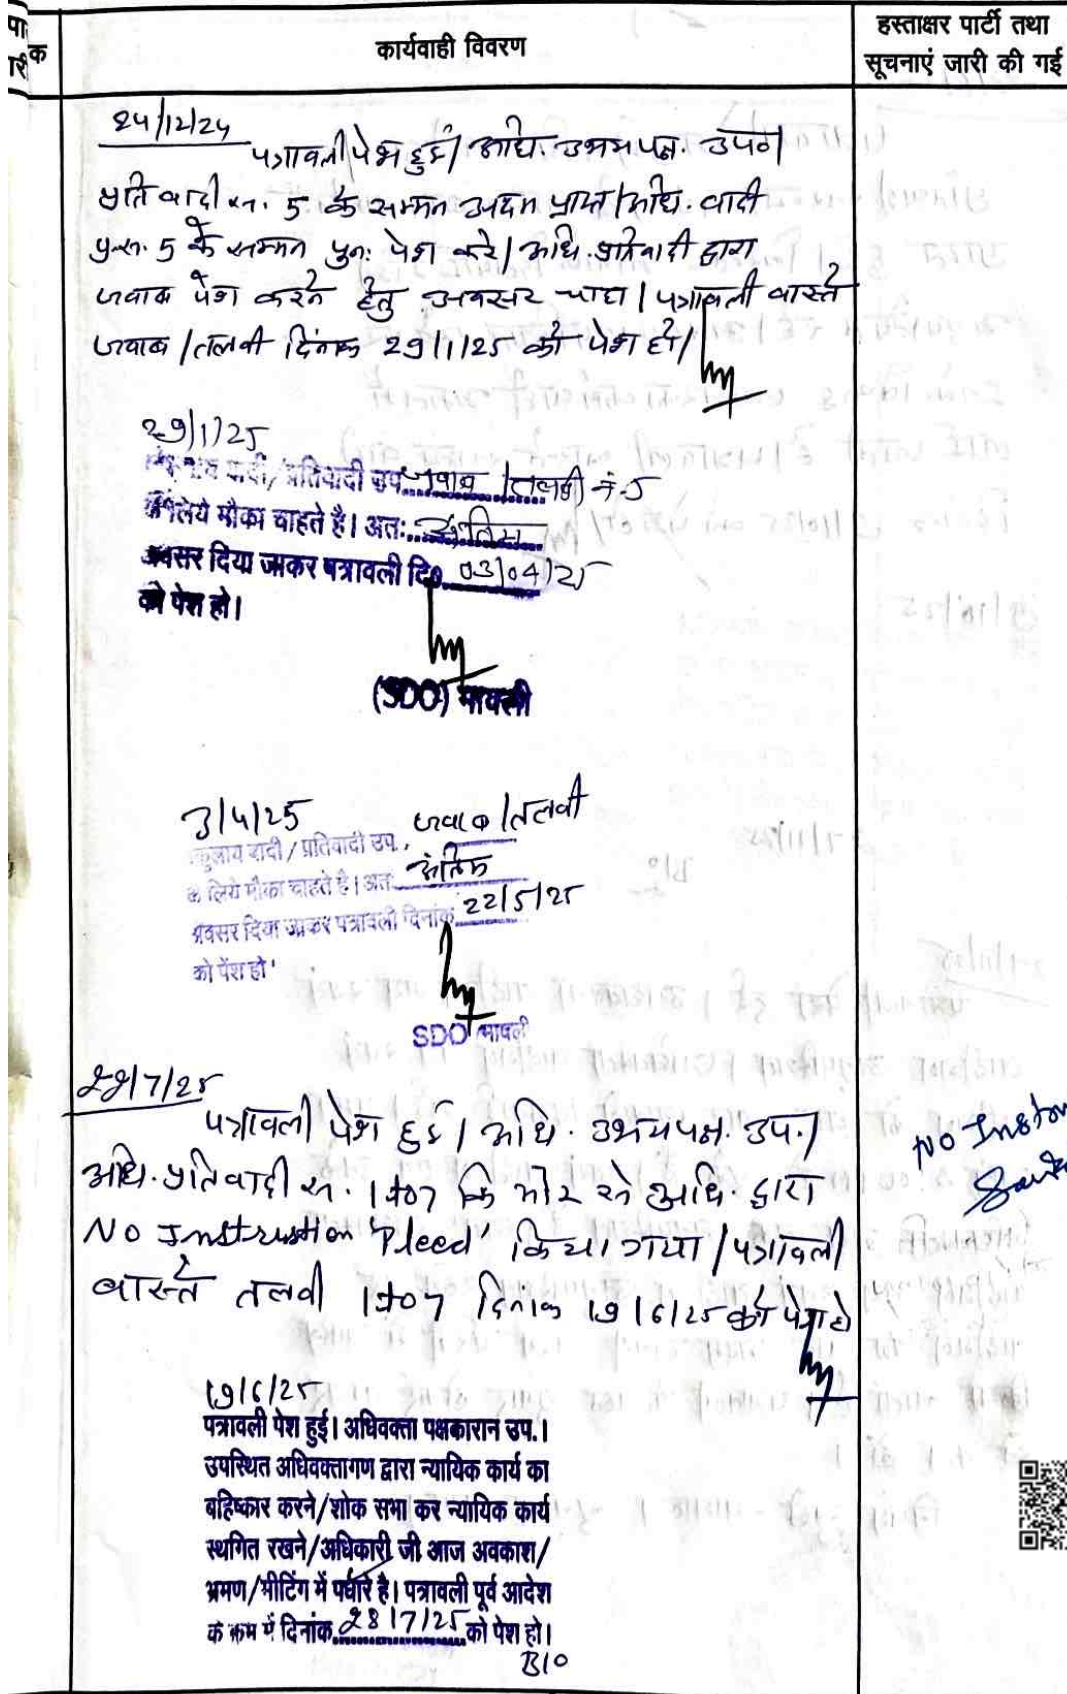 पा
री
क
कार्यवाही विवरण
हस्ताक्षर पार्टी तथा
सूचनाएं जारी की गई
24/12/24
पत्रावली पेश हुई। अधि. उभयपक्ष. उप०।
प्रतिवादी स. 5 के सम्मन अदम प्राप्त। अधि. वादी
प्र.स. 5 के सम्मन पुनः पेश करे। अधि. प्रतिवादी द्वारा
जवाब पेश करने हेतु अवसर चाहा। पत्रावली वास्ते
जवाब/तलबी दिनांक 29/1/25 को पेश हो।
29/1/25
वादी/प्रतिवादी उप. जवाब/तलबी नं-5
के लिये मौका चाहते है। अतः अंतिम
अवसर दिया जाकर पत्रावली दि० 03/04/25
को पेश हो।
(SDO) मावली
3/4/25 जवाब/तलबी
वादी/प्रतिवादी उप.
के लिये मौका चाहते है। अतः अंतिम
अवसर दिया जाकर पत्रावली दिनांक 22/5/25
को पेश हो
SDO मावली
22/7/25
पत्रावली पेश हुई। अधि. उभयपक्ष. उप.।
अधि. प्रतिवादी स. 1 to 7 कि ओर से अधि. द्वारा
No Instrustion 'Pleed' किया गया। पत्रावली
वास्ते तलबी 1 to 7 दिनांक 19/6/25 को पेश हो
No Instr
19/6/25
पत्रावली पेश हुई। अधिवक्ता पक्षकारान उप.।
उपस्थित अधिवक्तागण द्वारा न्यायिक कार्य का
बहिष्कार करने/शोक सभा कर न्यायिक कार्य
स्थगित रखने/अधिकारी जी आज अवकाश/
भ्रमण/मीटिंग में पधारे है। पत्रावली पूर्व आदेश
के क्रम में दिनांक 28/7/25 को पेश हो।
B/o